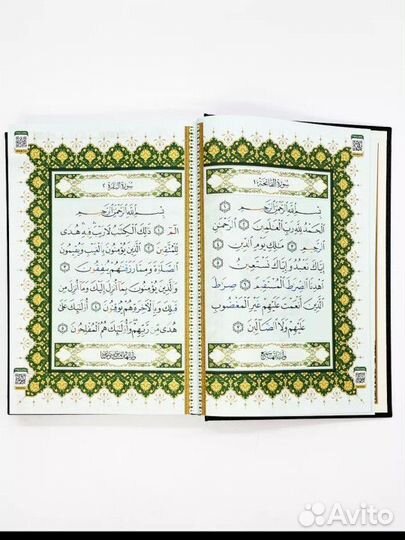 سُورَةُ الْفَاتِحَةِ ١
بِسْمِ اللَّهِ الرَّحْمَٰنِ الرَّحِيمِ ١
الْحَمْدُ لِلَّهِ رَبِّ الْعَٰلَمِينَ ٢ الرَّحْمَٰنِ
الرَّحِيمِ ٣ مَٰلِكِ يَوْمِ الدِّينِ ٤
إِيَّاكَ نَعْبُدُ وَإِيَّاكَ نَسْتَعِينُ ٥
اهْدِنَا الصِّرَٰطَ الْمُسْتَقِيمَ ٦ صِرَٰطَ
الَّذِينَ أَنْعَمْتَ عَلَيْهِمْ غَيْرِ الْمَغْضُوبِ
عَلَيْهِمْ وَلَا الضَّالِّينَ ٧
سُورَةُ الْبَقَرَةِ ٢
بِسْمِ اللَّهِ الرَّحْمَٰنِ الرَّحِيمِ
الم ١ ذَٰلِكَ الْكِتَٰبُ لَا رَيْبَ فِيهِ هُدًى
لِلْمُتَّقِينَ ٢ الَّذِينَ يُؤْمِنُونَ بِالْغَيْبِ وَيُقِيمُونَ
الصَّلَوٰةَ وَمِمَّا رَزَقْنَٰهُمْ يُنْفِقُونَ ٣
وَالَّذِينَ يُؤْمِنُونَ بِمَا أُنْزِلَ إِلَيْكَ وَمَا أُنْزِلَ مِنْ
قَبْلِكَ وَبِالْآخِرَةِ هُمْ يُوقِنُونَ ٤ أُولَٰئِكَ عَلَىٰ
هُدًى مِنْ رَبِّهِمْ وَأُولَٰئِكَ هُمُ الْمُفْلِحُونَ ٥
Avito